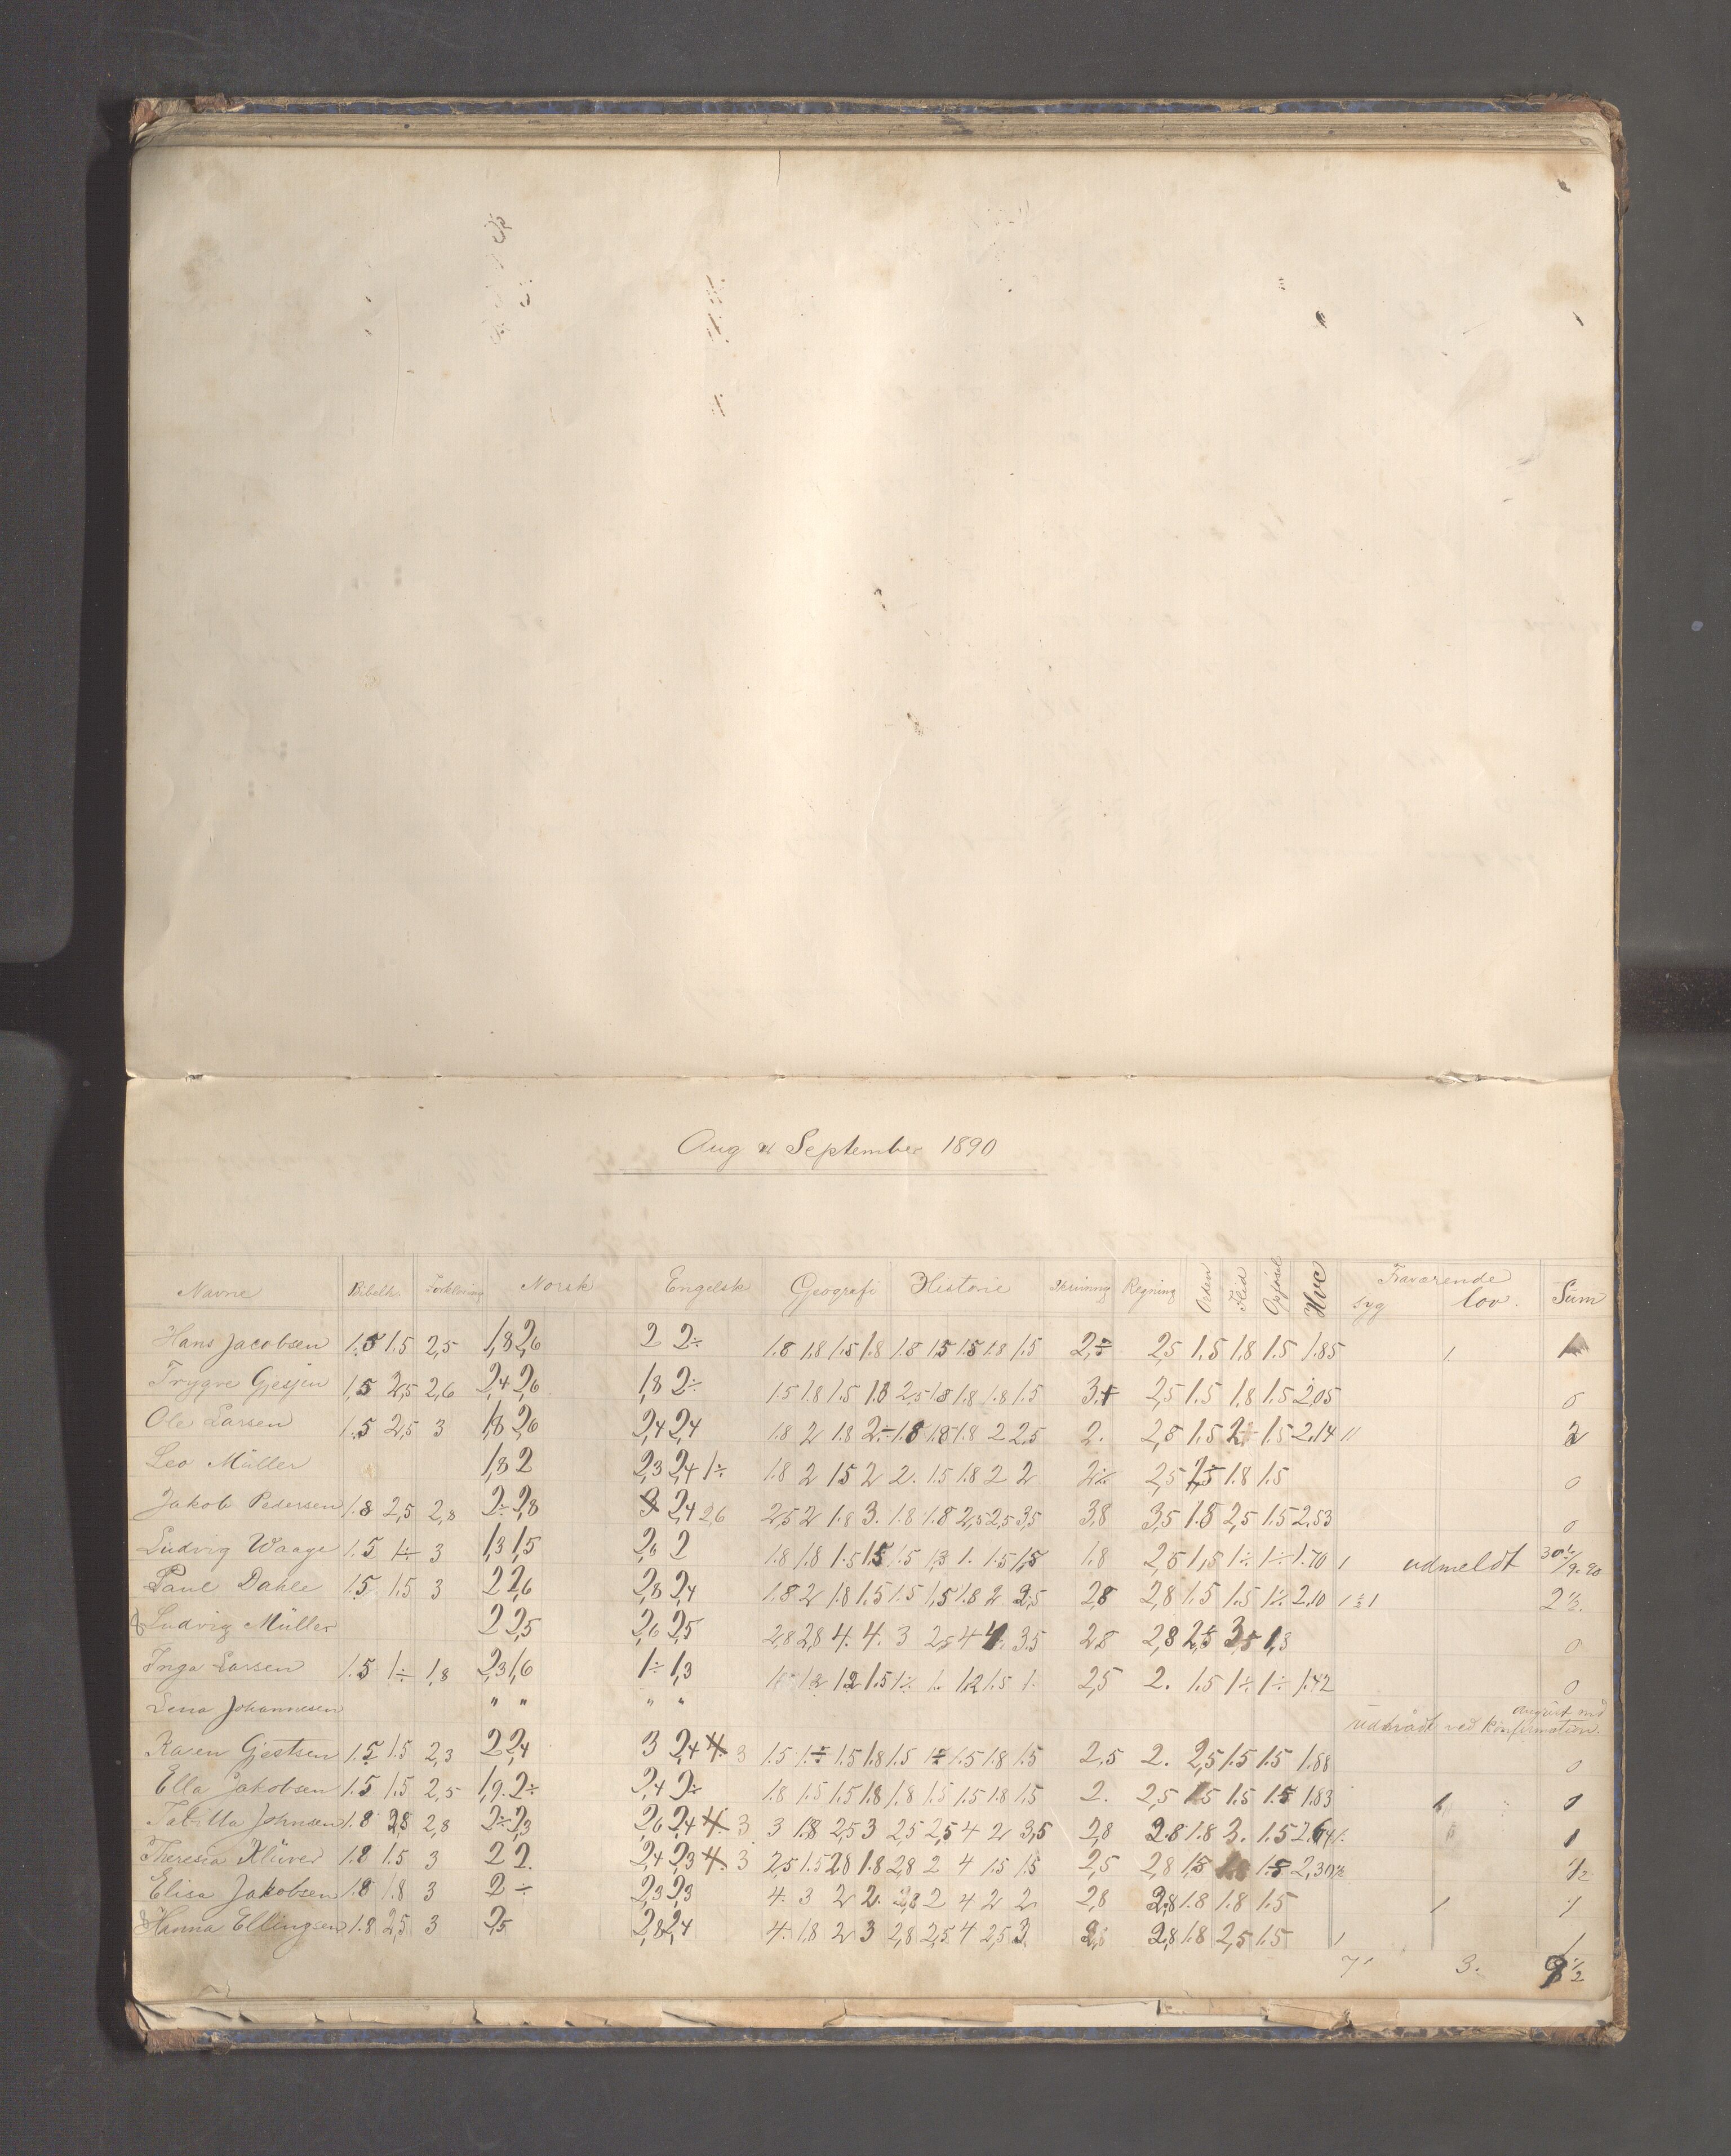 Aug & September 1890
Navne Bibelh. Forklaring Norsk Engelsk Geografi Historie Skrivning Regning Orden Flid Opførsel Hvc Fraværende syg lov. Sum
Hans Jacobsen 1.5 1.5 2,5 1,8 2,6 2 2÷ 1.8 1.8 1.5 1.8 1.8 1.5 1.5 1.8 1.5 2,÷ 2,5 1.5 1.8 1.5 1.85 1. 1
Trygve Gjesjen 1,5 2,5 2,6 2,4 2,6 1,8 2÷ 1.5 1.8 1.5 1.8 2,5 1.8 1.8 1.8 1.5 3.+ 2,5 1.5 1.8 1.5 2,05 0
Ole Larsen 1.5 2,5 3 1,8 2,6 2,4 2,4 1.8 2 1.8 2.÷ 1.8 1.8 1.8 2 2,5 2. 2,8 1.5 2÷ 1.5 2.14 11 2
Leo Müller 1,8 2 2,3 2,4 1÷ 1.8 2 1.5 2 2. 1.5 1.8 2 2 2÷ 2,5 2,5 1.8 1.5 0
Jakob Pedersen 1.8 2,5 2,8 2÷ 2,8 2,4 2,6 2,5 2 1.8 3. 1.8 1.8 2,5 2,5 3,5 3,8 3,5 1.8 2,5 1.5 2,53 0
Ludvig Waage 1.5 1÷ 3 1,3 1,5 2,6 2 1.8 1.8 1.5 1.5 1.5 1,3 1. 1.5 1,5 1.8 2,5 1,5 1÷ 1÷ 1.70 1 udmeldt 30te/9.90
Paul Dahle 1.5 1.5 3 2 2,6 2,8 2,4 1.8 2 1.8 1.5 1.5 1,5 1.8 2 2,5 2,8 2,8 1.5 1.5 1÷ 2,10 1 ½ 1 2½.
Ludvig Müller 2 2,5 2,6 2,5 2,8 2,8 4. 4. 3 2,5 4 4. 3.5 2,8 2,8 2,5 3,5 1,8 0
Inga Larsen 1.5 1÷ 1,8 2,3 1,6 1÷ 1,3 1.2 1.5 1÷ 1. 1.2 1.5 1. 2,5 2. 1.5 1÷ 1÷ 1.42 0
Lena Johannesen " " " " udtrådt ved Konfirmation. august md
Karen Gjestsen 1.5 1.5 2,3 2 2,4 3 2,4 4. 3 1.5 1.÷ 1.5 1.8 1.5 1÷ 1.5 1.8 1.5 2.5 2. 2,5 1.5 1.5 1.88 0
Ella Jakobsen 1.5 1.5 2,5 1,9. 2÷ 2,4 2÷ 1.8 1.5 1.5 1.8 1.8 1.5 1.5 1.8 1.5 2. 2,5 1.5 1.5 1.5 1.83 1 1
Tabitta Johnsen 1.8 2,8 2,8 2÷ 2,3 2,6 2,4 4. 3 3 1.8 2,5 3 2,5 2,5 4 2 3,5 2,8 2.8 1.8 3. 1.5 2.64 1. 1
Theresia Klüver 1.8 1.5 3 2 2. 2,4 2,3 4. 3 2,5 1.5 2,8 1.8 2,8 2 4 1.5 1.5 2,5 2,8 1.5 1.5 2,30 ½ ½
Elisa Jakobsen 1.8 1.8 3 2 ÷ 2,3 2,3 4. 3 2 2. 2,8 2 4 2 2 2,8 2,8 1.8 1.8 1.5 1 1
Hanna Ellingsen 1.8 2,5 3 2,5 2,8 2,4 4. 1.8 2 3 2,8 2,5 4 2,5 3. 2,8 2,8 1.8 2,5 1.5 1 1
7' 3. 9 ½